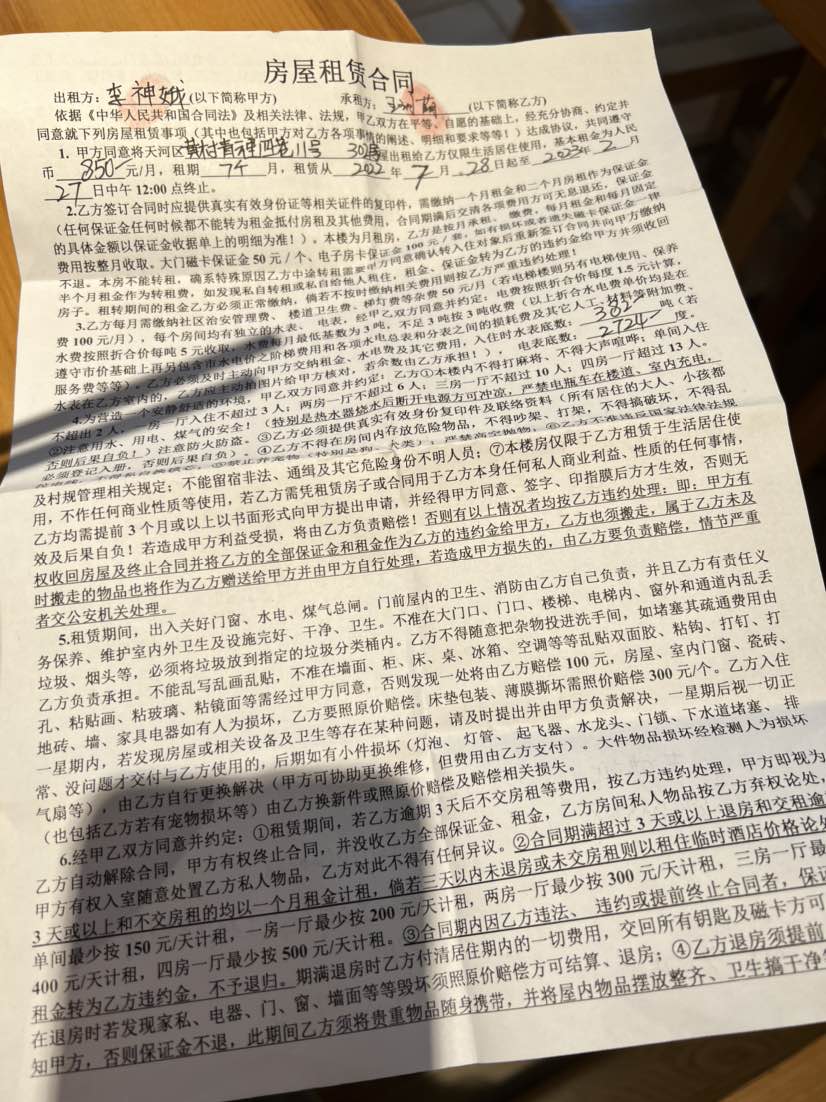 房屋租赁合同
出租方：李神娥(以下简称甲方) 承租方： (以下简称乙方)
依据《中华人民共和国合同法》及相关法律、法规，甲乙双方在平等、自愿的基础上，经充分协商、约定并
同意就下列房屋租赁事项（其中也包括甲方对乙方各项事情的阐述、明细和要求等等！）达成协议，共同遵守
1. 甲方同意将天河区黄村 11号 302房屋出租给乙方仅限生活居住使用，基本租金为人民
币 850 元/月，租期 7个 月，租赁从 2022 年 7 月 28 日起至 2023年 2 月
27 日中午 12:00 点终止。
2.乙方签订合同时应提供真实有效身份证等相关证件的复印件，需缴纳一个月租金和二个月房租作为保证金
（任何保证金任何时候都不能转为租金抵付房租及其他费用，合同期满后交清各项费用方可无息退还，保证金
的具体金额以保证金收据单上的明细为准！）。本楼为月租房，乙方是按月承租、缴费，每月租金和每月固定
费用按整月收取。大门磁卡保证金 50 元 / 个、电子房卡保证金 100 元 / 套，如有损坏或者遗失磁卡保证金一律
不退。本房不能转租，确系特殊原因乙方中途转租需要甲方同意确认转入住对象后重新签订合同并向甲方缴纳
半个月租金作为转租费，如发现私自转租或私自给他人租住，租金、保证金转为乙方的违约金给甲方并须收回
房子。租转期间的租金乙方必须正常缴纳，倘若不按时缴纳相关费用则按乙方严重违约处理！
3.乙方每月需缴纳社区治安管理费、楼道卫生费、梯灯费等杂费 50 元/月（若电梯楼则另有电梯使用、保养
费 100 元/月），每个房间均有独立的水表、电表，经甲乙双方同意并约定：电费按照折合价每度 1.5 元计算，
水费按照折合价每吨 5 元收取，水费每月最低基数为 3 吨，不足 3 吨按 3 吨收费（以上折合水电费单价均是在
遵守市价基础上再另包含市水电价之阶梯费用和各项水电总表和分表之间的损耗费及其它人工、材料等附加费、
服务费等等）。乙方必须及时主动向甲方交纳租金、水电费及其它费用，入住时水表底数： 382 吨（若
水表在乙方室内的，乙方应主动拍图片给甲方核对，若余数由乙方承担！），电表底数： 2724 度。
4.为营造一个安静舒适的环境，甲乙双方同意并约定：乙方①本楼内不得打麻将、不得大声喧哗；单间入住
不超出 2 人，一房一厅入住不超过 3 人；两房一厅不超过 6 人；三房一厅不超过 10 人；四房一厅超过 13 人。
②注意用水、用电、煤气的安全！（特别是热水器烧水后断开电源方可冲凉，严禁电瓶车在楼道、室内充电，
否则后果自负！）注意防火防盗。③乙方必须提供真实有效身份复印件及联络资料（所有居住的大人、小孩都
必须登记入册，否则后果自负）。④乙方不得在房间内存放危险物品，不得吵架、打架，不得搞破坏，不得乱
及村规管理相关规定；不能留宿非法、通缉及其它危险身份不明人员；⑦本楼房仅限于乙方租赁于生活居住使
用，不作任何商业性质等使用，若乙方需凭租赁房子或合同用于乙方本身任何私人商业利益、性质的任何事情，
乙方均需提前 3 个月或以上以书面形式向甲方提出申请，并经得甲方同意、签字、印指膜后方才生效，否则无
效及后果自负！若造成甲方利益受损，将由乙方负责赔偿！否则有以上情况者均按乙方违约处理：即：甲方有
权收回房屋及终止合同并将乙方的全部保证金和租金作为乙方的违约金给甲方，乙方也须搬走，属于乙方未及
时搬走的物品也将作为乙方赠送给甲方并由甲方自行处理，若造成甲方损失的，由乙方要负责赔偿，情节严重
者交公安机关处理。
5.租赁期间，出入关好门窗、水电、煤气总闸。门前屋内的卫生、消防由乙方自己负责，并且乙方有责任义
务保养、维护室内外卫生及设施完好、干净、卫生。不准在大门口、门口、楼梯、电梯内、窗外和通道内乱丢
垃圾、烟头等，必须将垃圾放到指定的垃圾分类桶内。乙方不得随意把杂物投进洗手间，如堵塞其疏通费用由
乙方负责承担。不能乱写乱画乱贴，不准在墙面、柜、床、桌、冰箱、空调等等乱贴双面胶、粘钩、打钉、打
孔、粘贴画、粘玻璃、粘镜面等需经过甲方同意，否则发现一处将由乙方赔偿 100 元，房屋、室内门窗、瓷砖、
地砖、墙、家具电器如有人为损坏，乙方要照原价赔偿。床垫包装、薄膜撕坏需照价赔偿 300 元/个。乙方入住
一星期内，若发现房屋或相关设备及卫生等存在某种问题，请及时提出并由甲方负责解决，一星期后视一切正
常、没问题才交付与乙方使用的，后期如有小件损坏（灯泡、灯管、起飞器、水龙头、门锁、下水道堵塞、排
气扇等），由乙方自行更换解决（甲方可协助更换维修，但费用由乙方支付）。大件物品损坏经检测人为损坏
（也包括乙方若有宠物损坏等）由乙方换新件或照原价赔偿及赔偿相关损失。
6.经甲乙双方同意并约定：①租赁期间，若乙方逾期 3 天后不交房租等费用，按乙方违约处理，甲方即视为
乙方自动解除合同，甲方有权终止合同，并没收乙方全部保证金、租金，乙方房间私人物品按乙方弃权论处，
甲方有权入室随意处置乙方私人物品，乙方对此不得有任何异议。②合同期满超过 3 天或以上退房和交租逾
3 天或以上和不交房租的均以一个月租金计租，倘若三天以内未退房或未交房租则以租住临时酒店价格论处
单间最少按 150 元/天计租，一房一厅最少按 200 元/天计租，两房一厅最少按 300 元/天计租，三房一厅最
400 元/天计租，四房一厅最少按 500 元/天计租。③合同期内因乙方违法、违约或提前终止合同者，保证
租金转为乙方违约金，不予退归。期满退房时乙方付清居住期内的一切费用，交回所有钥匙及磁卡方可
在退房时若发现家私、电器、门、窗、墙面等等毁坏须照原价赔偿方可结算、退房；④乙方退房须提前
知甲方，否则保证金不退，此期间乙方须将贵重物品随身携带，并将屋内物品摆放整齐、卫生搞干净